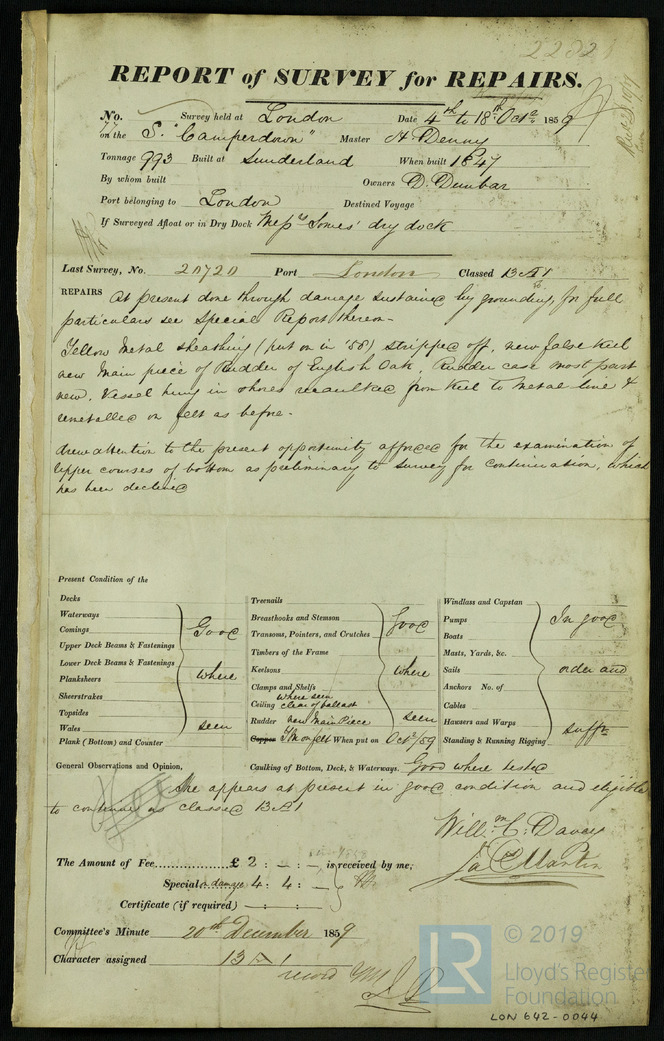 REPORT of SURVEY for REPAIRS.
No. Survey held at London Date 4th to 18th Octr. 1859
on the S. "Camperdown" Master H. Denny
Tonnage 993 Built at Sunderland When built 1847
By whom built Owners D. Dunbar
Port belonging to London Destined Voyage
If Surveyed Afloat or in Dry Dock Messrs Somes' dry dock
Last Survey, No. 20720 Port London Classed 13 A 1
REPAIRS At present done through damage sustained by grounding, for full
particulars see Special Report thereon -
Yellow Metal sheathing (put on in '56) stripped off, new false keel
new Main piece of Rudder of English Oak, Rudder case most part
new. Vessel hung in shores recaulked from keel to metal line &
remetalled on felt as before -
drew attention to the present opportunity afforded for the examination of
upper courses of bottom as preliminary to survey for continuation, which
has been declined
Present Condition of the
Decks
Waterways
Comings
Upper Deck Beams & Fastenings
Lower Deck Beams & Fastenings
Planksheers
Sheerstrakes
Topsides
Wales
Plank (Bottom) and Counter
Good
where
seen
Treenails
Breasthooks and Stemson
Transoms, Pointers, and Crutches
Timbers of the Frame
Keelsons
Clamps and Shelfs
Ceiling where seen clear of ballast
Rudder new Main Piece
Copper YM on felt When put on Octr/59
Good
where
seen
Windlass and Capstan
Pumps
Boats
Masts, Yards, &c.
Sails
Anchors No. of
Cables
Hausers and Warps
Standing & Running Rigging
In good
order and
sufft
General Observations and Opinion, Caulking of Bottom, Deck, & Waterways. Good where tested
She appears at present in good condition and eligible
to continue as classed 13 A 1
Willm. C. Davey
Jas. P. Martin
The Amount of Fee £ 2 : - : - is received by me,
Special on damage 4 : 4 : -
Certificate (if required) - : - : -
Committee's Minute 20th December 1859
Character assigned 13 A 1
record YM
© 2019
LR
Lloyd's Register
Foundation
LON 642-0044